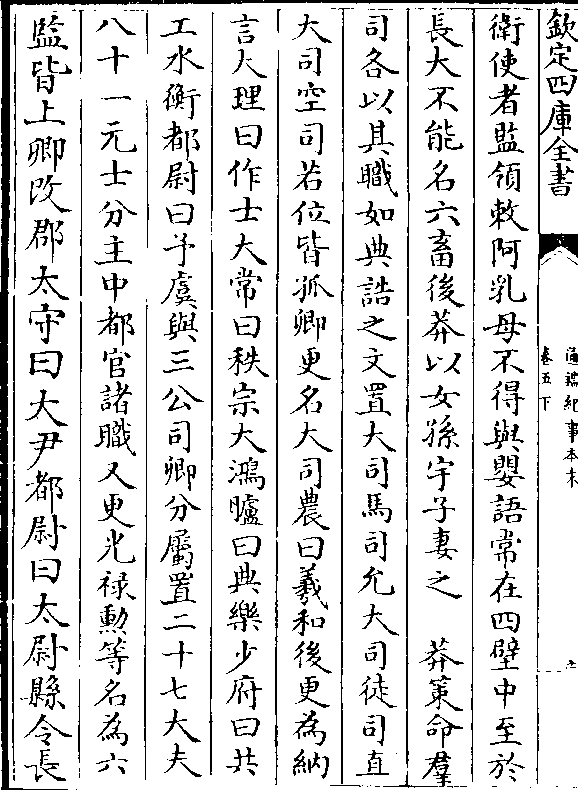 欽定四庫全書
通鑑紀事本末
卷五下
衛使者監領敕阿乳母不得與嬰語常在四壁中至於
長大不能名六畜後莽以女孫宇子妻之　莽策命羣
司各以其職如典誥之文置大司馬司允大司徒司直
大司空司若位皆孤卿更名大司農曰羲和後更為納
言大理曰作士大常曰秩宗大鴻臚曰典樂少府曰共
工水衡都尉曰予虞與三公司卿分屬置二十七大夫
八十一元士分主中都官諸職又更光禄勲等名為六
監皆上卿改郡太守曰大尹都尉曰太尉縣令長